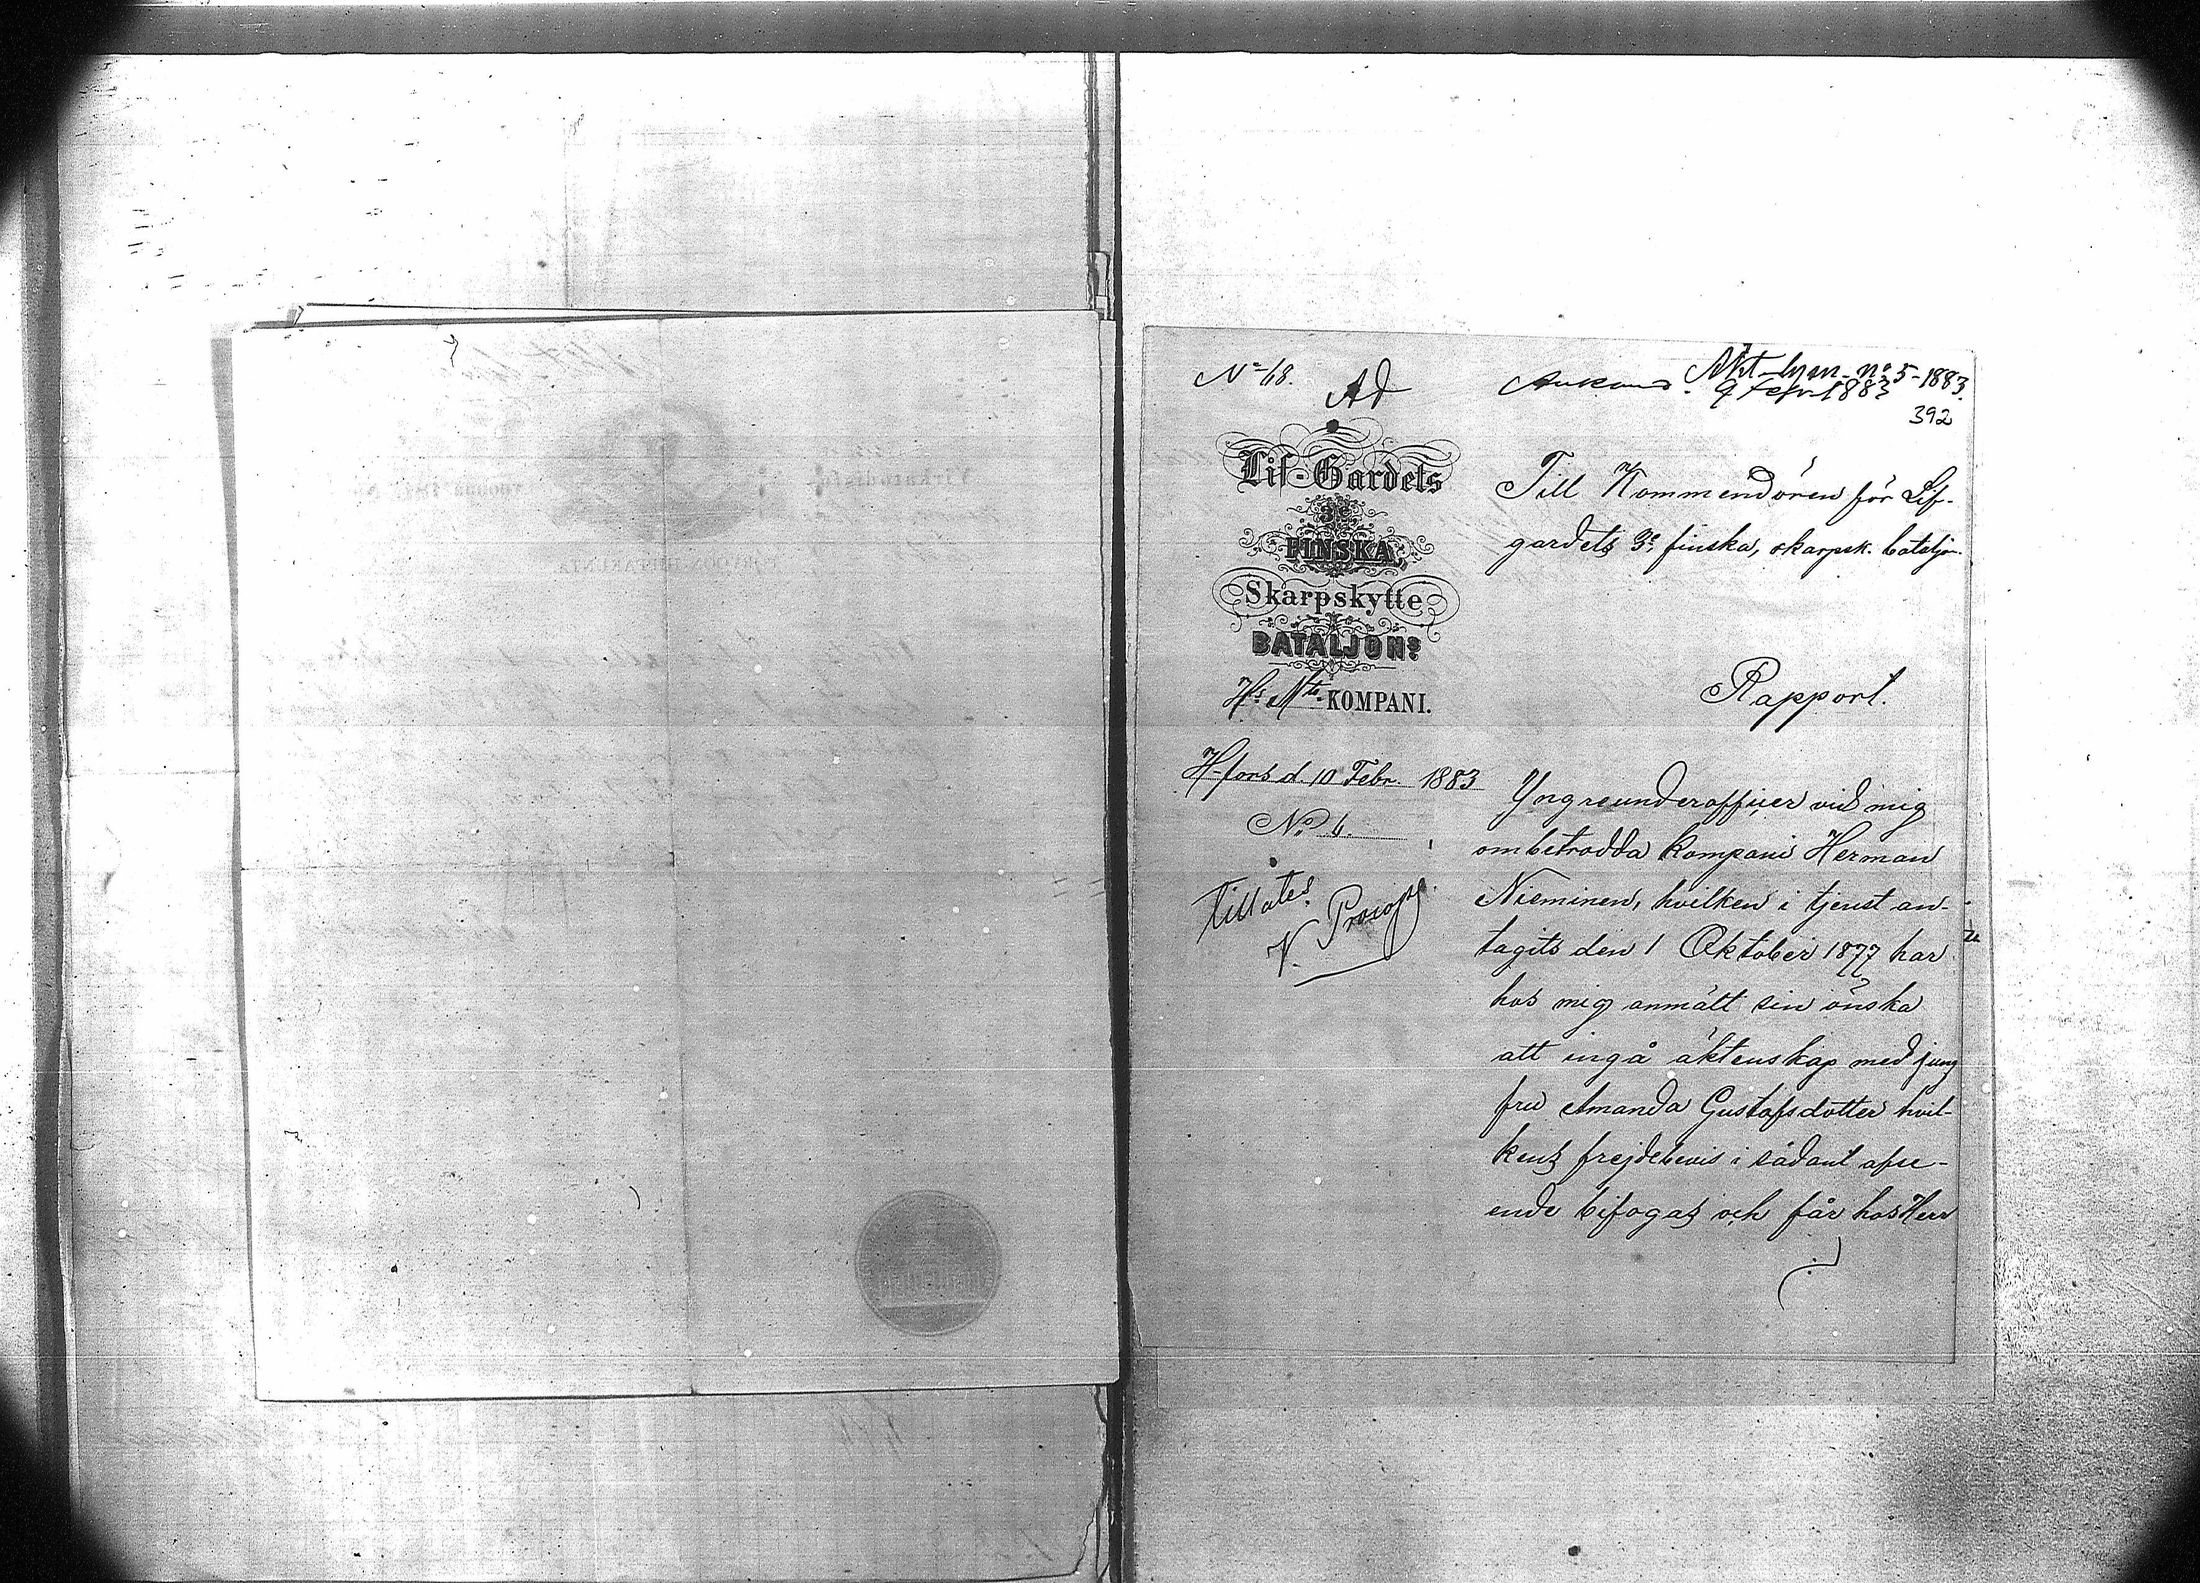 No 68.
Ad
Akt-lysn. no 5-1883.
9 Febr 1883
392
Lif-Gardets
3e
FINSKA,
Skarpskytte
BATALJONs
Hs Mts KOMPANI.
H-fors d. 10 Febr. 1883
No 6.
Tillåtes.
V. Procopé
Till Kommendören för Lif-
gardets 3e finska, skarpsk. bataljon.
Rapport.
Yngreunderofficer vid mig
ombetrodda kompani Herman
Nieminen, hvilken i tjenst an-
tagits den 1 Oktober 1877 har
hos mig anmält sin önska
att ingå äktenskap med jung
fru Amanda Gustafsdotter hvil-
kens frejdebevis i sådant afse-
ende bifogas och får hos Herr